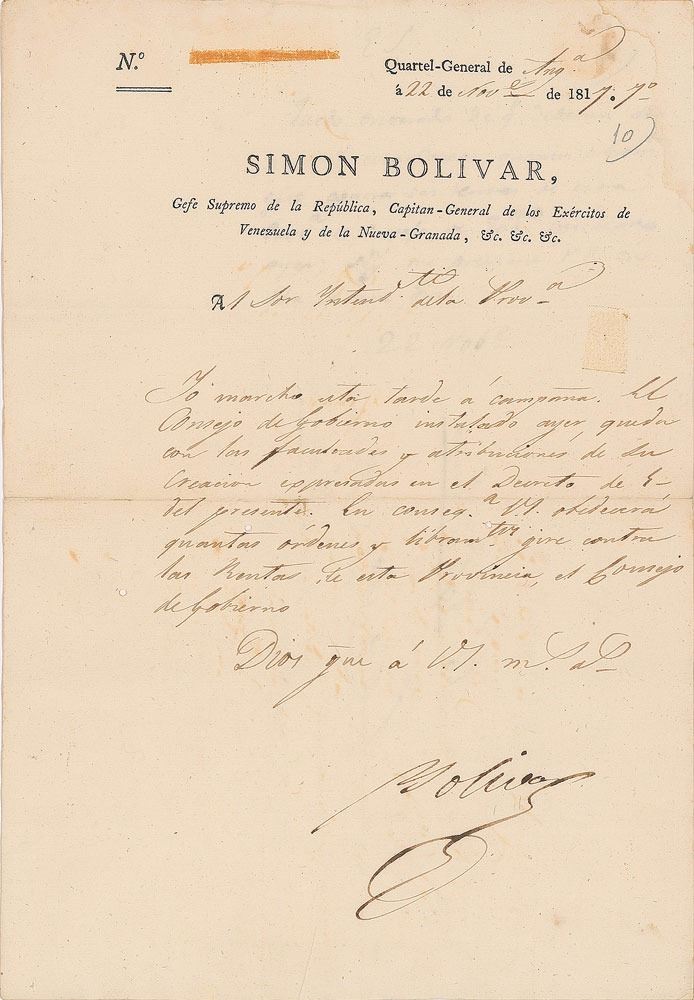 N.º
Quartel-General de Ang.ª
á 22 de Nov.e de 1817. 7º
10)
SIMON BOLIVAR,
Gefe Supremo de la República, Capitan-General de los Exércitos de
Venezuela y de la Nueva-Granada, &c. &c. &c.
Al Sor Intend.te de la Prov.a
Yo marcho esta tarde á campaña. El
Consejo de Gobierno instalado ayer, queda
con las facultades y atribuciones de su
Creacion expresadas en el Decreto de 5
del presente. En conseq.a V.S. obedecerá
quantas órdenes y libram.tos gire contra
las Rentas de esta Provincia, el Consejo
de Gobierno
Dios gue á V.S. m.s a.s
Bolivar